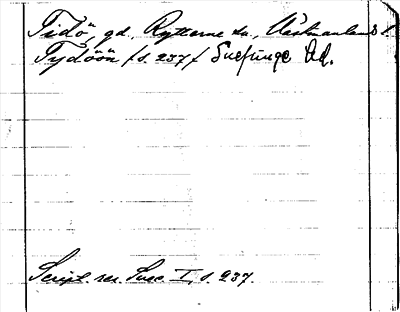 Tidö, gd., Rytterne sn., Västmanlands l.
Tydöön /s. 237/ Snefringe hd.
Script. rer. Suec. I, s. 237.